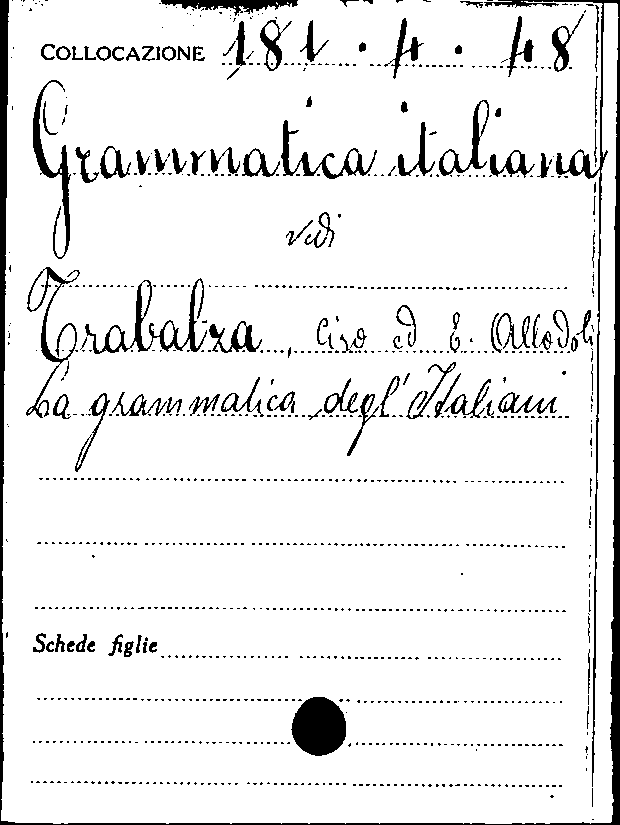 COLLOCAZIONE 181. 4. 48
Grammatica italiana
vedi
Trabalza, Ciro ed E. Allodoli
La grammatica degl'Italiani
Schede figlie